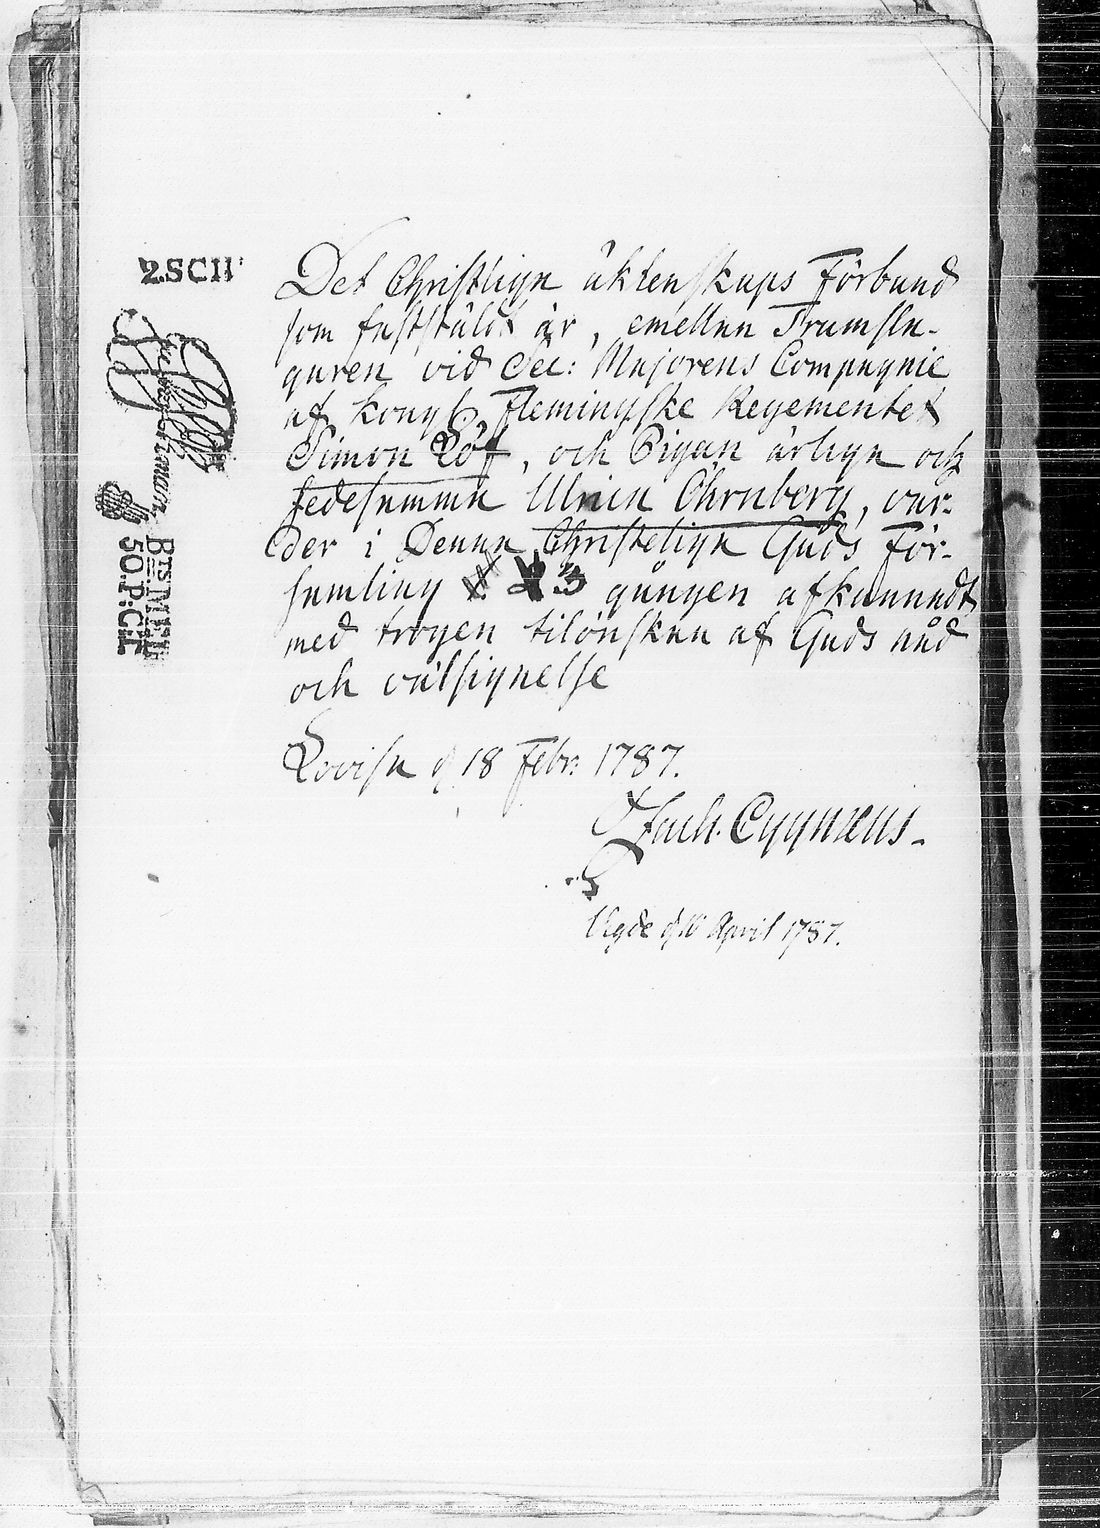 2.SCII
BTS.MEL
50.P:CT.
Det Christliga äktenskaps Förbund
som fastställt är, emellan Trumsla-
garen vid Sec: Majorens Compagnie
af Kongl. Flemingske Regementet
Simon Löf, och Pigan ärliga och
sedesamma Ulrica Öhrnberg, var-
der i Denna Christeliga Guds För-
samling 3 gången afkunnadt
med trogen tilönskan af Guds nåd
och välsignelse
Lovisa d 18 Febr: 1787.
Zach. Cygnæus.
Vigde d 10 April 1787.